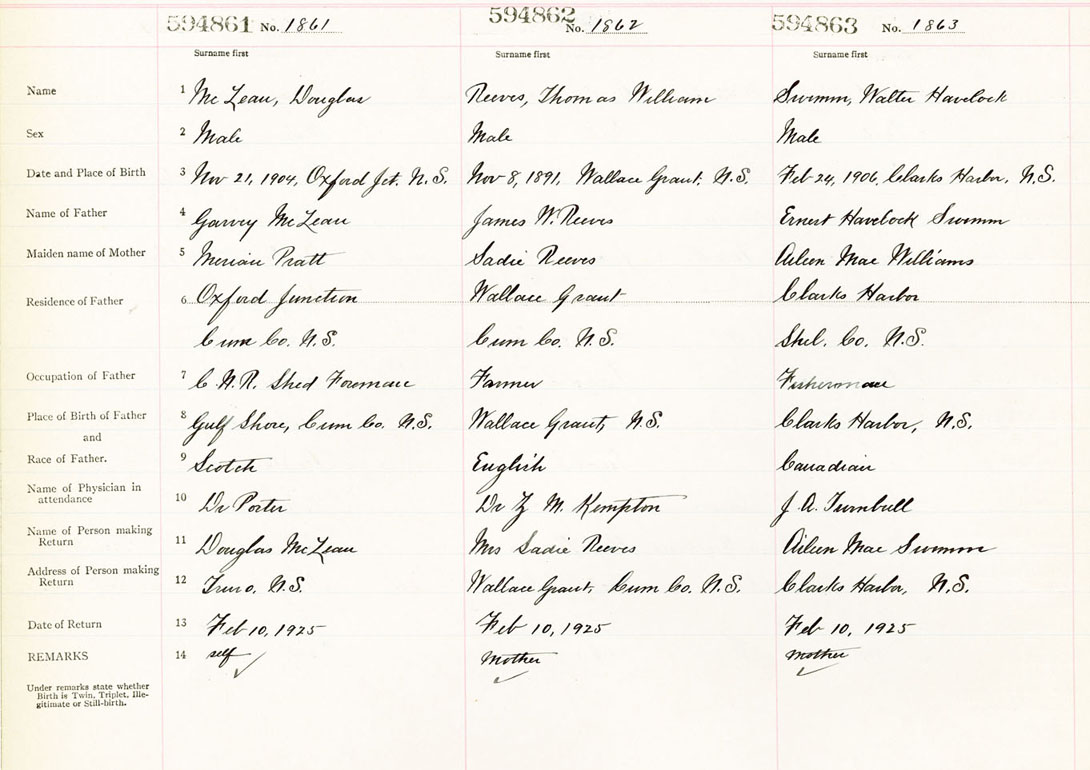 594861 No. 1861 594862 No. 1862 594863 No. 1863
Surname first Surname first Surname first
Name 1 McLean, Douglas Reeves, Thomas William Swimm, Walter Havelock
Sex 2 Male Male Male
Date and Place of Birth 3 Nov 21, 1904, Oxford Jct. N.S. Nov 8, 1891, Wallace Grant, N.S. Feb 24, 1906, Clarks Harbor, N.S.
Name of Father 4 Garvey McLean James W. Reeves Ernest Havelock Swimm
Maiden name of Mother 5 Pratt Sadie Reeves Aileen Mae Williams
Residence of Father 6 Oxford Junction Wallace Grant Clarks Harbor
Cum Co. N.S. Cum Co. N.S. Shel. Co. N.S.
Occupation of Father 7 C.N.R. Shed Foreman Farmer Fisherman
Place of Birth of Father 8 Gulf Shore, Cum Co. N.S. Wallace Grant, N.S. Clarks Harbor, N.S.
and
Race of Father. 9 Scotch English Canadian
Name of Physician in
attendance 10 Dr Porter Dr M. Kempton J. A. Turnbull
Name of Person making
Return 11 Douglas McLean Mrs Sadie Reeves Aileen Mae Swimm
Address of Person making
Return 12 Truro, N.S. Wallace Grant, Cum Co. N.S. Clarks Harbor, N.S.
Date of Return 13 Feb 10, 1925 Feb 10, 1925 Feb 10, 1925
REMARKS 14 self mother mother
Under remarks state whether
Birth is Twin, Triplet, Ille-
gitimate or Still-birth.